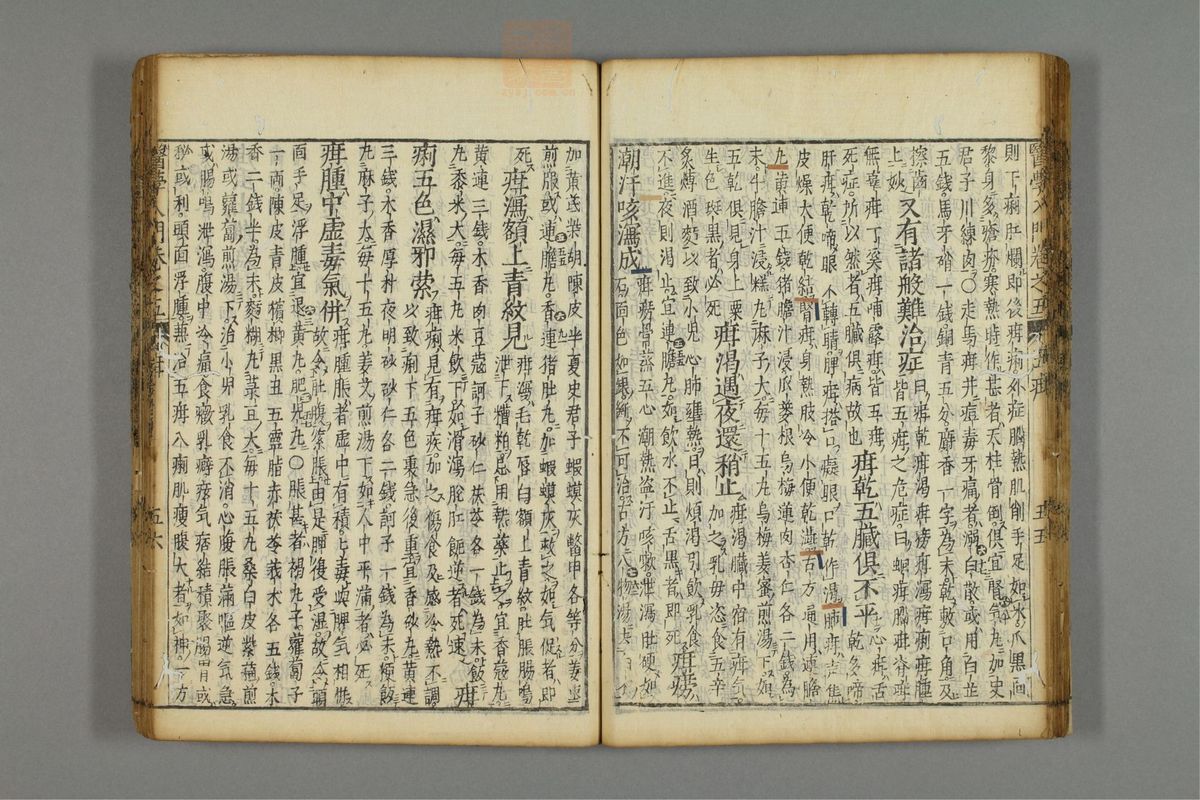 則下痢肛爛即後疳病外症腦熱肌削手足如冰爪黑面
黎身多瘡疥寒熱時作甚者天柱骨倒俱宜腎氣丸加史
君子川練肉〇走馬疳并痘毒牙痛者溺白散或用白芷
五錢馬牙硝一錢銅青五分麝香一字為末乾敷口角及
擦齒上妙
又有諸般難治症
曰疳乾疳渴疳癆疳瀉疳痢疳腫
皆五疳之危症曰蛔疳腦疳脊疳
無辜疳丁奚疳哺露疳皆五疳
死症所以然者五臟俱病故也
疳乾五臟俱不平
心疳舌乾多啼
肝疳乾啼眼不轉睛脾疳搭口癡眼口乾作渴肺疳聲焦
皮燥大便乾結腎疳身熱肢冷小便乾澁古方通用連膽
丸黃連五錢猪膽汁浸瓜蔞根烏梅蓮肉杏仁各二錢為
末牛膽汁浸糕丸麻子大每十五丸烏梅姜蜜煎湯下如
五乾俱見身上粟生色斑黑者必死
疳渴遇夜還稍止
疳渴臟中宿有疳氣
加之乳母恣食五辛
炙煿酒麪以致小兒心肺壅熱日則煩渴引飲乳食
不進夜則渴止宜連膽丸如飲水不止舌黑者即死
疳癆
潮汗咳瀉成
疳癆骨蒸五心潮熱盜汗咳嗽泄瀉肚硬如
石面色如銀斷不可治古方人物湯去
加黃芪柴胡陳皮半夏史君子蝦蟆灰鱉甲各等分姜棗
煎服或連膽丸香連猪肚丸加蝦蟆灰救之如氣促者即
死
疳瀉額上青紋見
疳瀉毛乾唇白額上青紋肚脹腸鳴
泄下糟粕忌用熱藥止宜香蔻丸
黃連三錢木香肉豆蔻訶子砂仁茯苓各一錢為末飯
丸黍米大每五丸米飲下如滑瀉脫肛飽逆者死速
疳
痢五色濕邪縈
疳痢見有疳疾加之傷食及感冷熱不調
以致痢下五色裏急後重宜香砂丸黃連
三錢木香厚朴夜明砂砂仁各二錢訶子一錢為末粳飯
丸麻子大每十五丸姜艾煎湯下如人中平滿者必死
疳腫中虛毒氣併
疳腫脹者虛中有積毒與脾氣相併
故令肚腹緊脹由是脾後受濕故令頭
面手足浮腫宜退黃丸肥兒丸〇脹甚者褐丸子蘿蔔子
一兩陳皮青皮檳榔黑丑五靈脂赤茯苓莪朮各五錢木
香二錢半為末麪糊丸菉豆大每十五丸桑白皮紫蘇煎
湯或蘿蔔煎湯下治小兒乳食不消心腹脹滿嘔逆氣急
或腸鳴泄瀉腹中冷痛食癥乳癖痃氣痞結積聚腸胃或
秘或利頭面浮腫兼治五疳八痢肌瘦腹大者如神一方
醫學入門卷之五
五疳
五五
五六